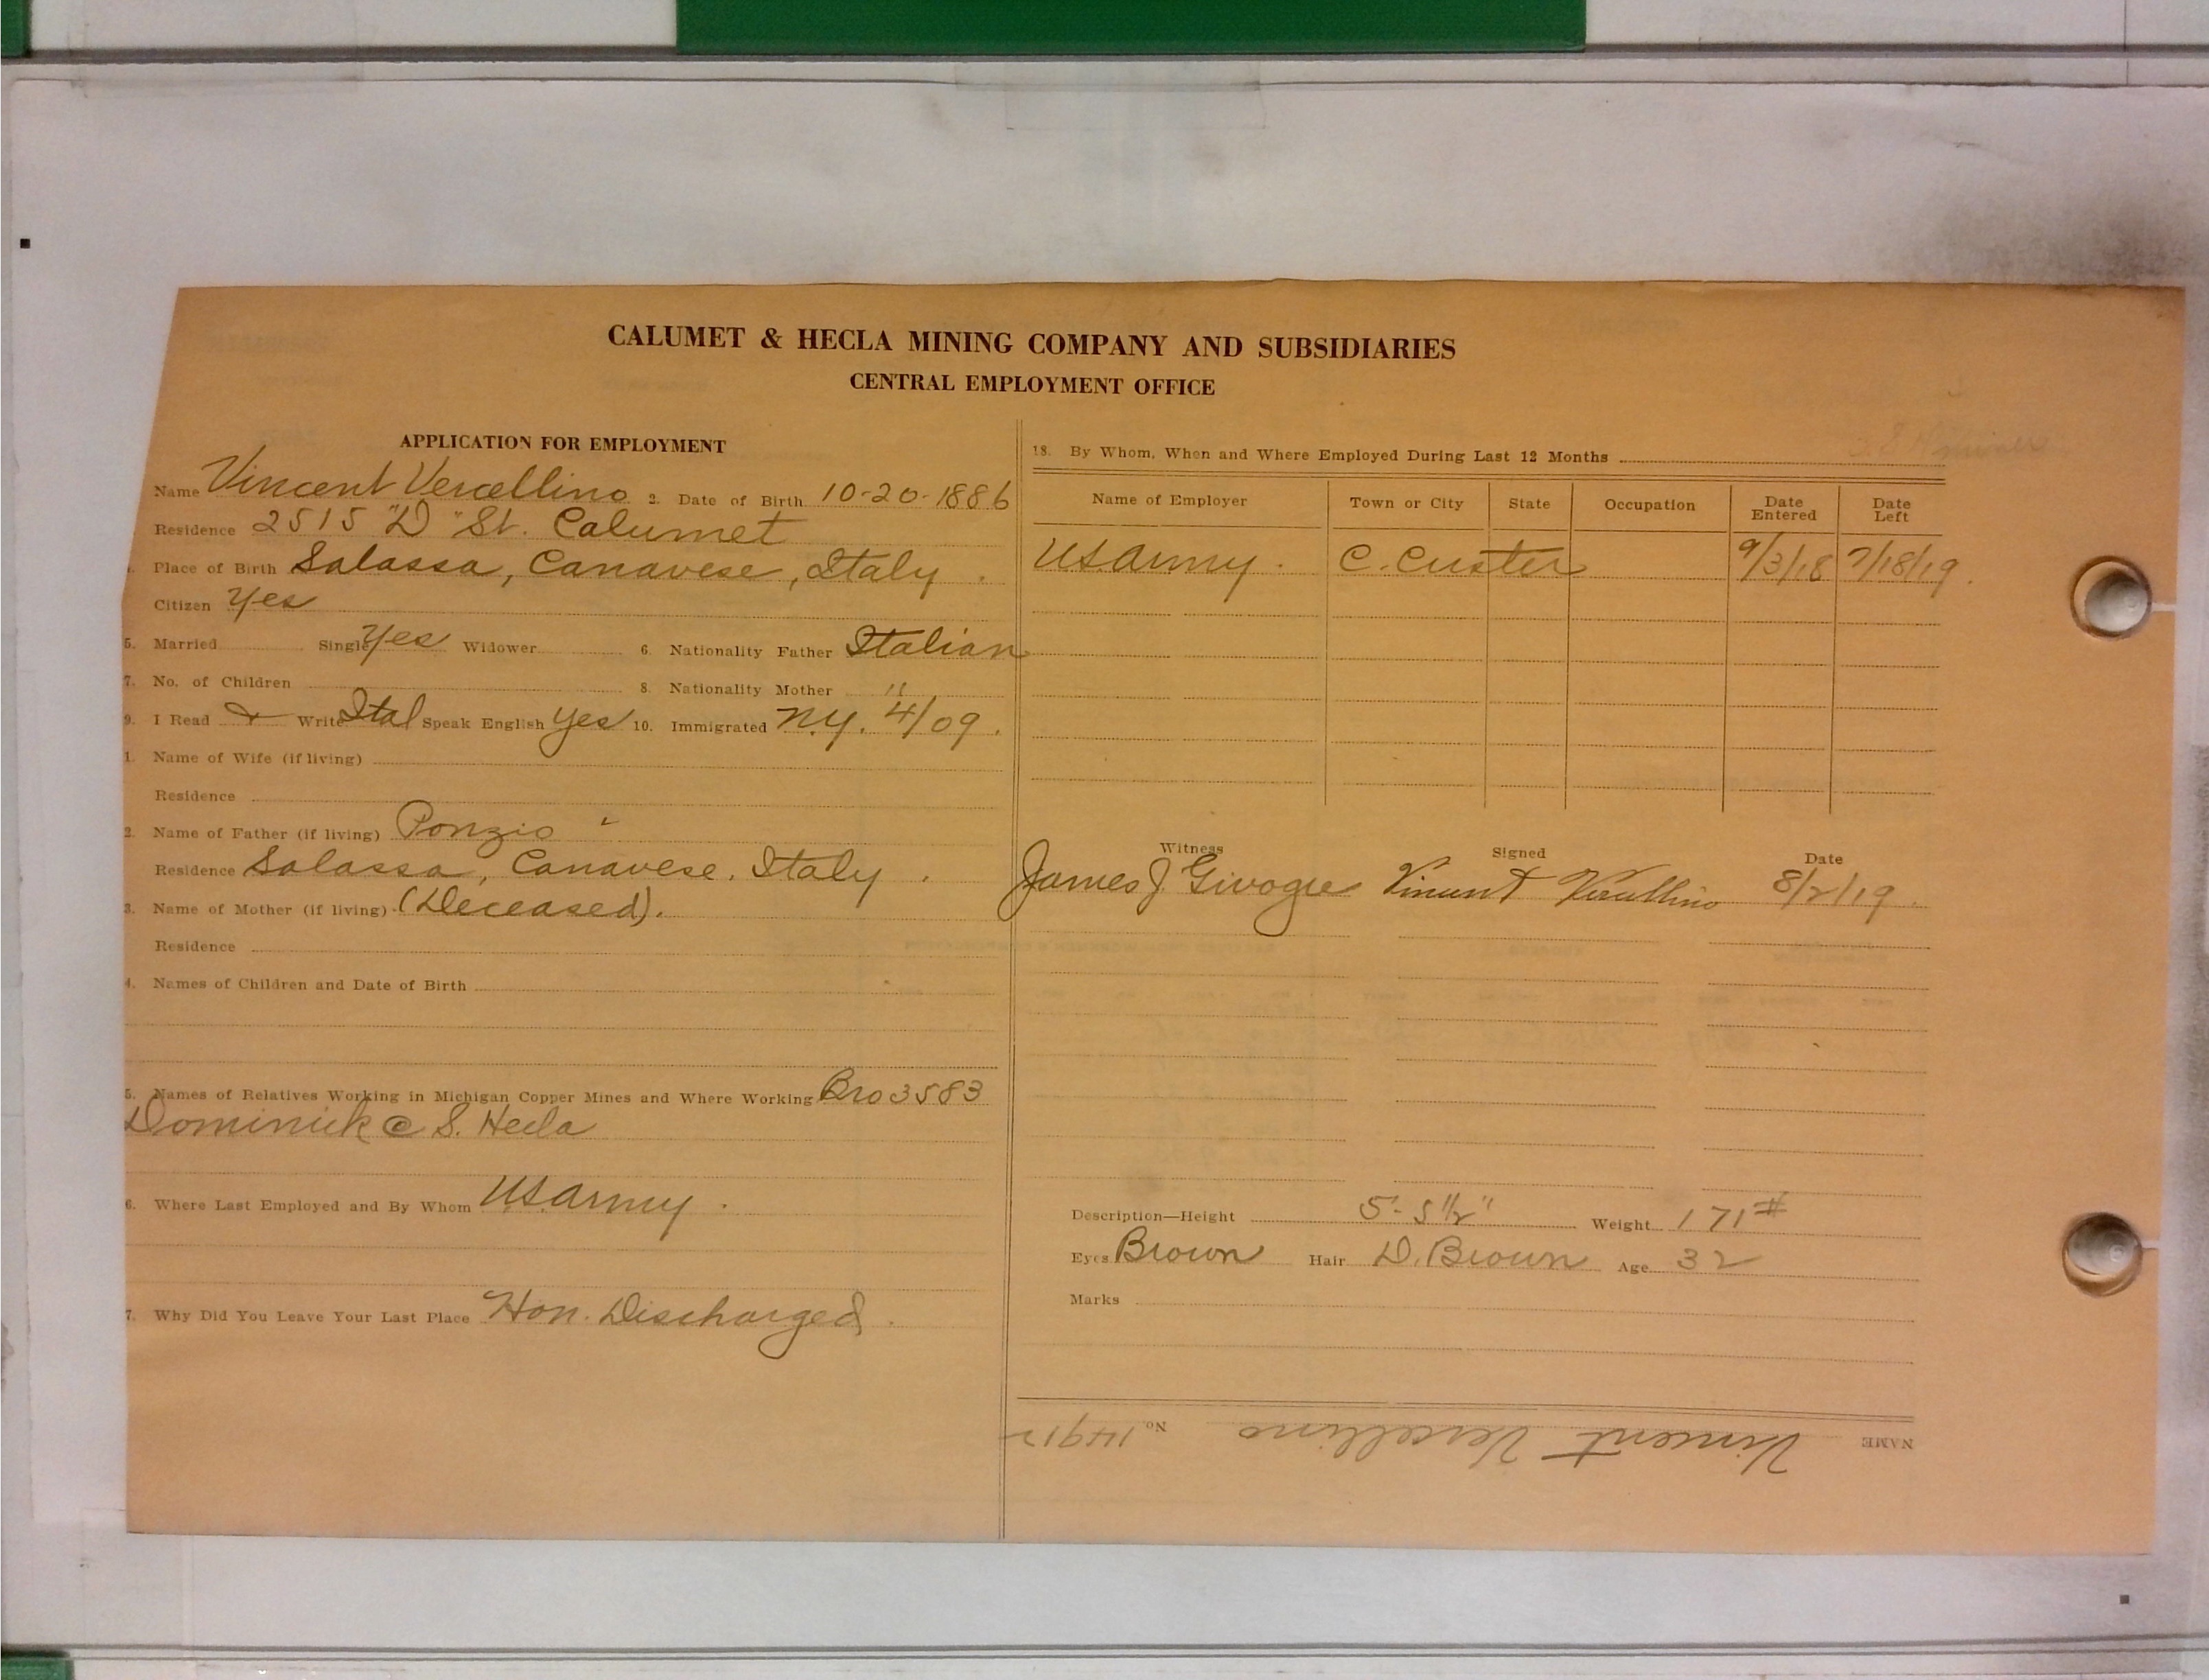 CALUMET & HECLA MINING COMPANY AND SUBSIDIARIES
CENTRAL EMPLOYMENT OFFICE
APPLICATION FOR EMPLOYMENT
Name Vincent Vercellino 2. Date of Birth 10-20-1886
Residence 2515 "D" St. Calumet
Place of Birth Salassa, Canavese, Italy.
Citizen Yes
5. Married Single Yes Widower 6. Nationality Father Italian
7. No. of Children 8. Nationality Mother "
9. I Read & Write Ital Speak English Yes 10. Immigrated N.Y. 4/09.
1. Name of Wife (if living)
Residence
2. Name of Father (if living) Ponzio "
Residence Salassa, Canavese, Italy.
3. Name of Mother (if living) (Deceased).
Residence
4. Names of Children and Date of Birth
5. Names of Relatives Working in Michigan Copper Mines and Where Working Bro 3583
Dominick @ S. Hecla
6. Where Last Employed and By Whom U.S. Army.
7. Why Did You Leave Your Last Place Hon. Discharged.
18. By Whom, When and Where Employed During Last 12 Months
Name of Employer Town or City State Occupation Date Entered Date Left
US Army. C. Custer 9/3/18 7/18/19.
Witness Signed Date
James J. Vincent Vercellino 8/2/19.
Description—Height 5'-5 1/2" Weight 171#
Eyes Brown Hair D. Brown Age 32
Marks
NAME Vincent Vercellino No. 14912